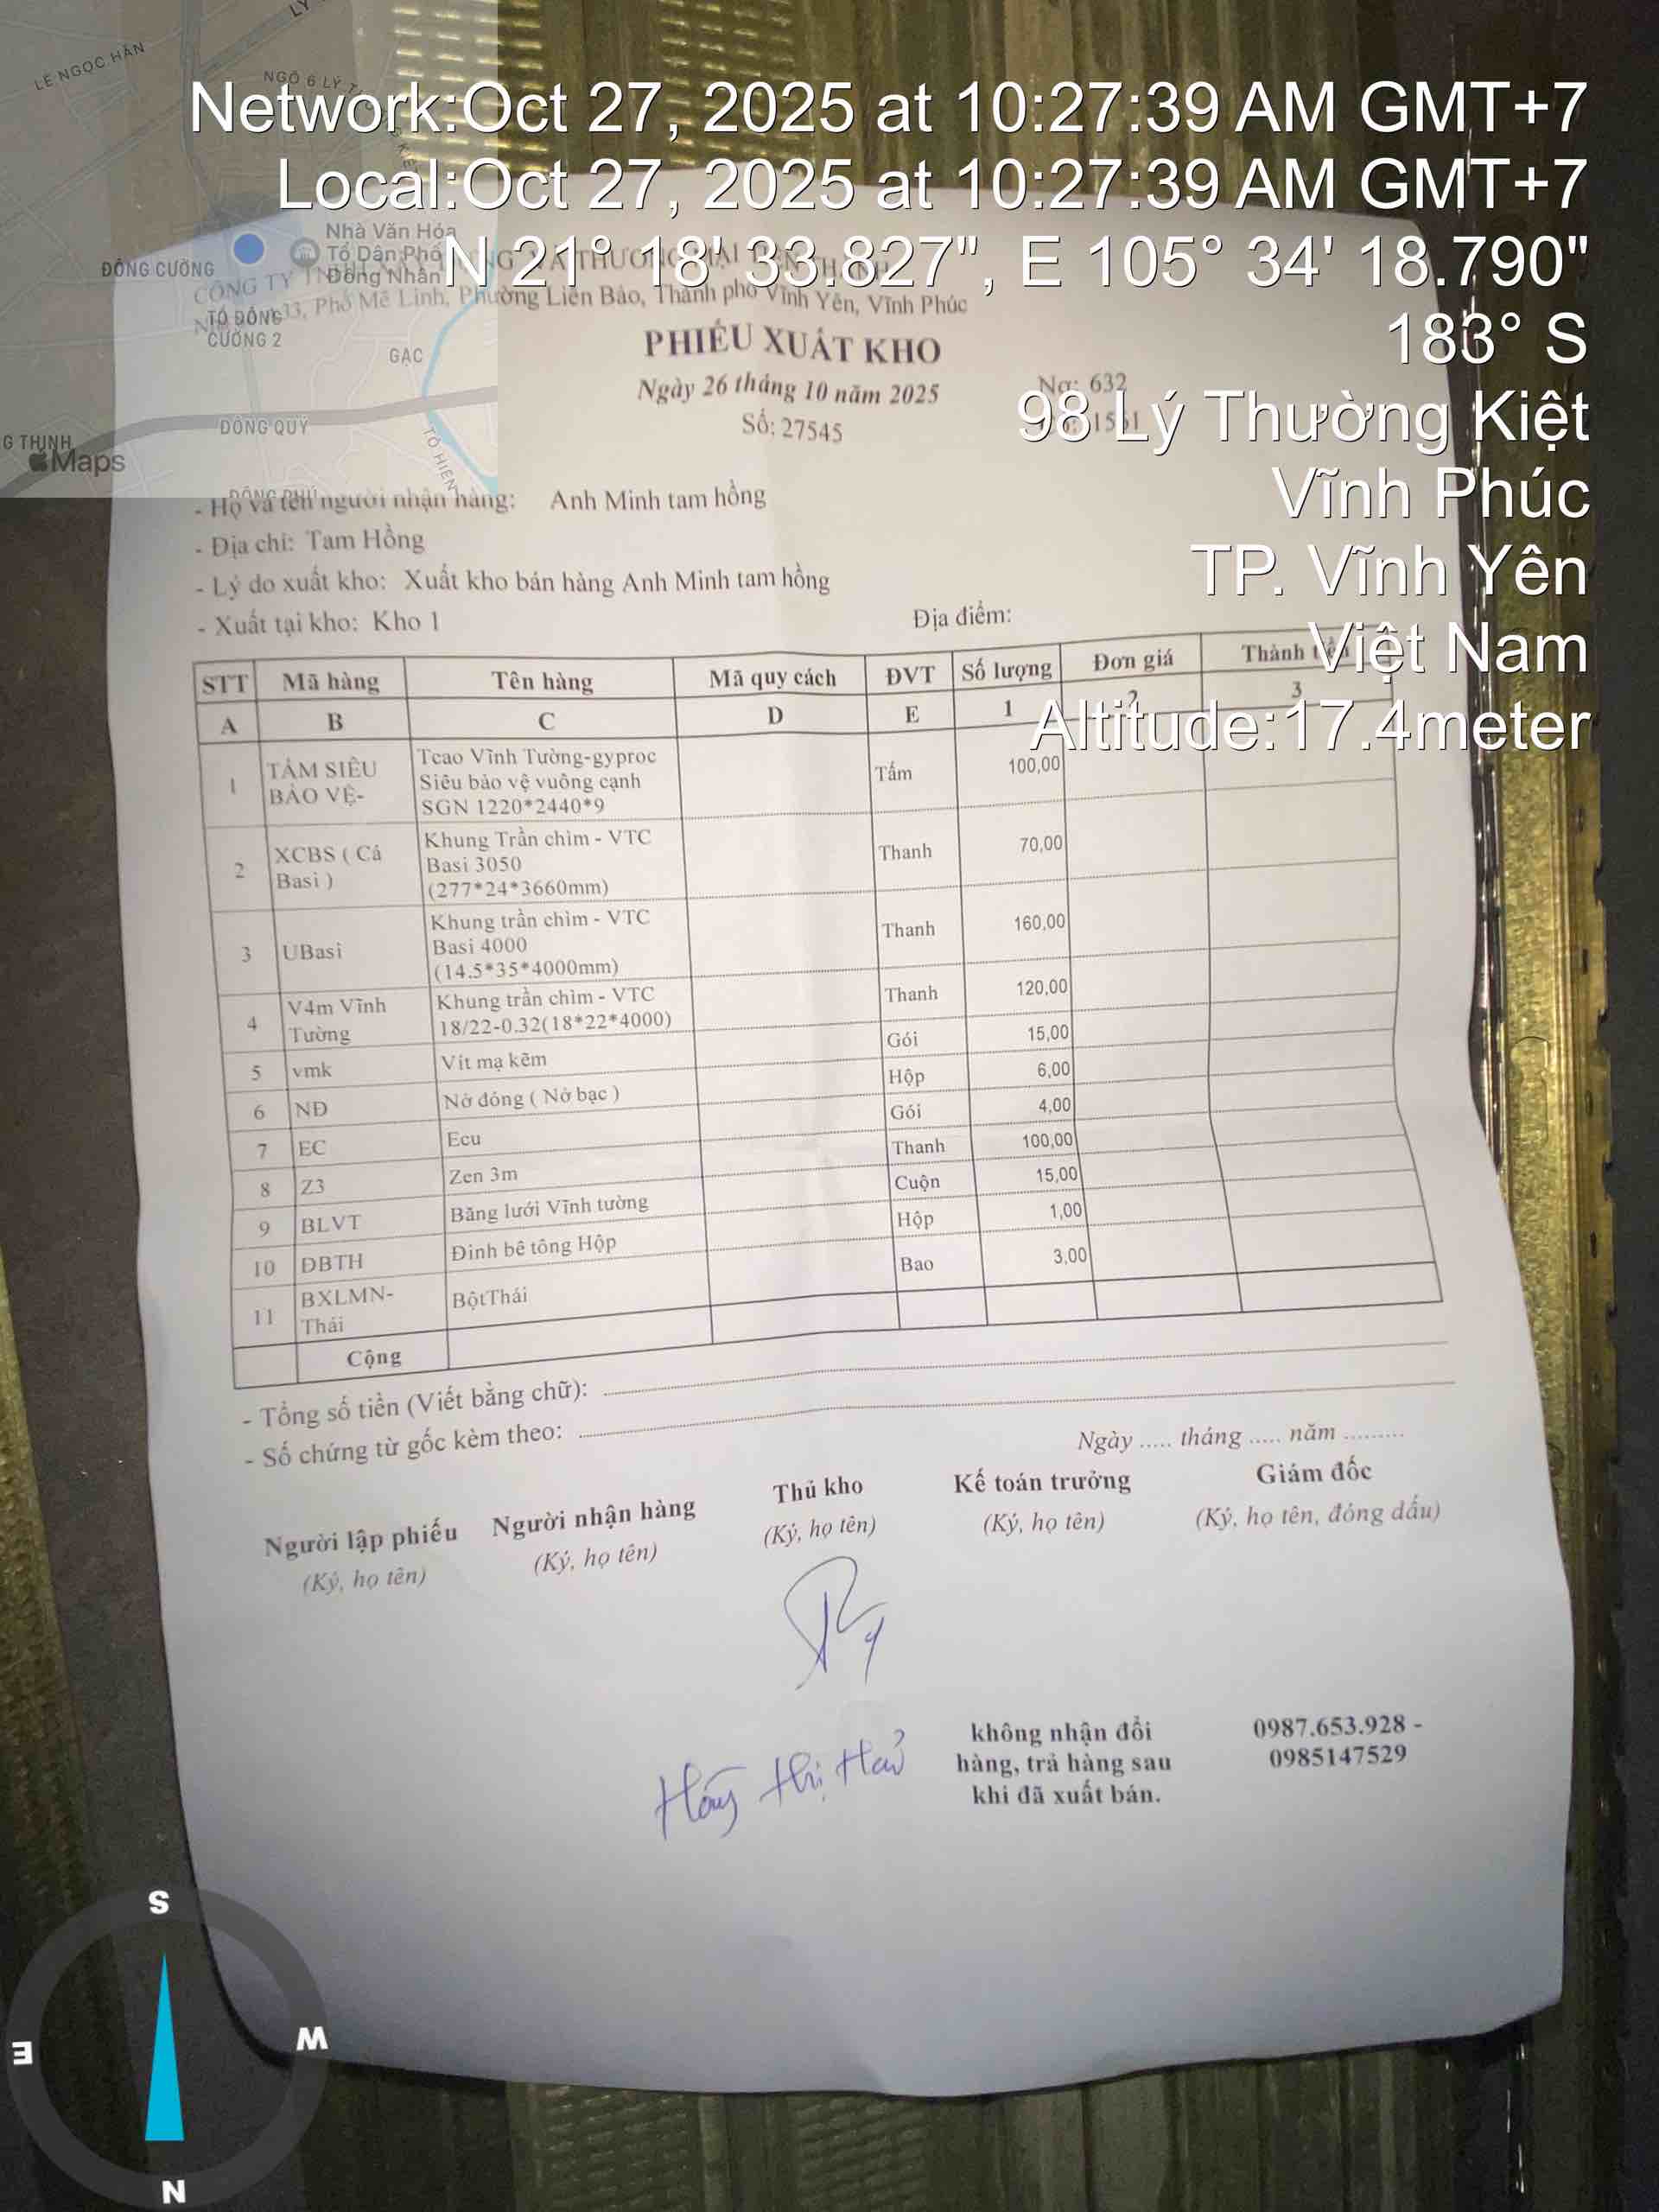 LÊ NGỌC HÂN
NGÕ 6 LÝ T
Network:Oct 27, 2025 at 10:27:39 AM GMT+7
Local:Oct 27, 2025 at 10:27:39 AM GMT+7
N 21° 18' 33.827", E 105° 34' 18.790"
183° S
98 Lý Thường Kiệt
Vĩnh Phúc
TP. Vĩnh Yên
Việt Nam
Altitude:17.4meter
Nhà Văn Hóa
Tổ Dân Phố
Đông Nhân
ĐÔNG CƯỜNG
TỔ ĐÔNG
CƯỜNG 2
GẠC
ĐÔNG QUÝ
G THỊNH
Maps
TÔ HIẾN
CÔNG TY
33, Phố Mê Linh, Phường Liên Bảo, Thành phố Vĩnh Yên, Vĩnh Phúc
PHIẾU XUẤT KHO
Ngày 26 tháng 10 năm 2025
Nợ: 632
Số: 27545
1561
- Họ và tên người nhận hàng: Anh Minh tam hồng
- Địa chỉ: Tam Hồng
- Lý do xuất kho: Xuất kho bán hàng Anh Minh tam hồng
- Xuất tại kho: Kho 1 Địa điểm:
STT Mã hàng Tên hàng Mã quy cách ĐVT Số lượng Đơn giá Thành tiền
A B C D E 1 2 3
1 TẤM SIÊU BẢO VỆ- Tcao Vĩnh Tường-gyproc Siêu bảo vệ vuông cạnh SGN 1220*2440*9 Tấm 100,00
2 XCBS ( Cá Basi ) Khung Trần chìm - VTC Basi 3050 (277*24*3660mm) Thanh 70,00
3 UBasi Khung trần chìm - VTC Basi 4000 (14.5*35*4000mm) Thanh 160,00
4 V4m Vĩnh Tường Khung trần chìm - VTC 18/22-0.32(18*22*4000) Thanh 120,00
5 vmk Vít mạ kẽm Gói 15,00
6 NĐ Nở đóng ( Nở bạc ) Hộp 6,00
7 EC Ecu Gói 4,00
8 Z3 Zen 3m Thanh 100,00
9 BLVT Băng lưới Vĩnh tường Cuộn 15,00
10 ĐBTH Đinh bê tông Hộp Hộp 1,00
11 BXLMN-Thái BộtThái Bao 3,00
Cộng
- Tổng số tiền (Viết bằng chữ):
- Số chứng từ gốc kèm theo:
Ngày ..... tháng ..... năm .........
Người lập phiếu Người nhận hàng Thủ kho Kế toán trưởng Giám đốc
(Ký, họ tên) (Ký, họ tên) (Ký, họ tên) (Ký, họ tên) (Ký, họ tên, đóng dấu)
không nhận đổi
hàng, trả hàng sau
khi đã xuất bán.
0987.653.928 -
0985147529
S
E
W
N